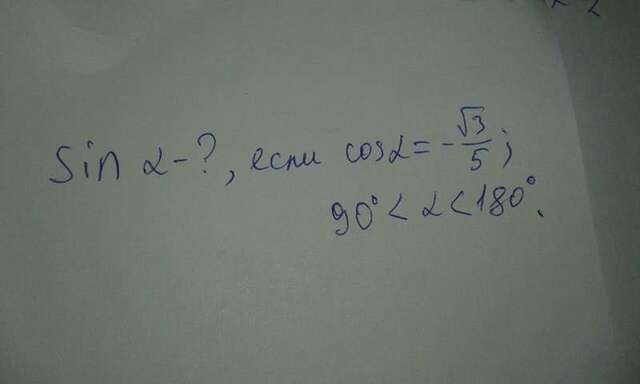 Sin α - ?, если cosα = -√3/5;
90° < α < 180°.